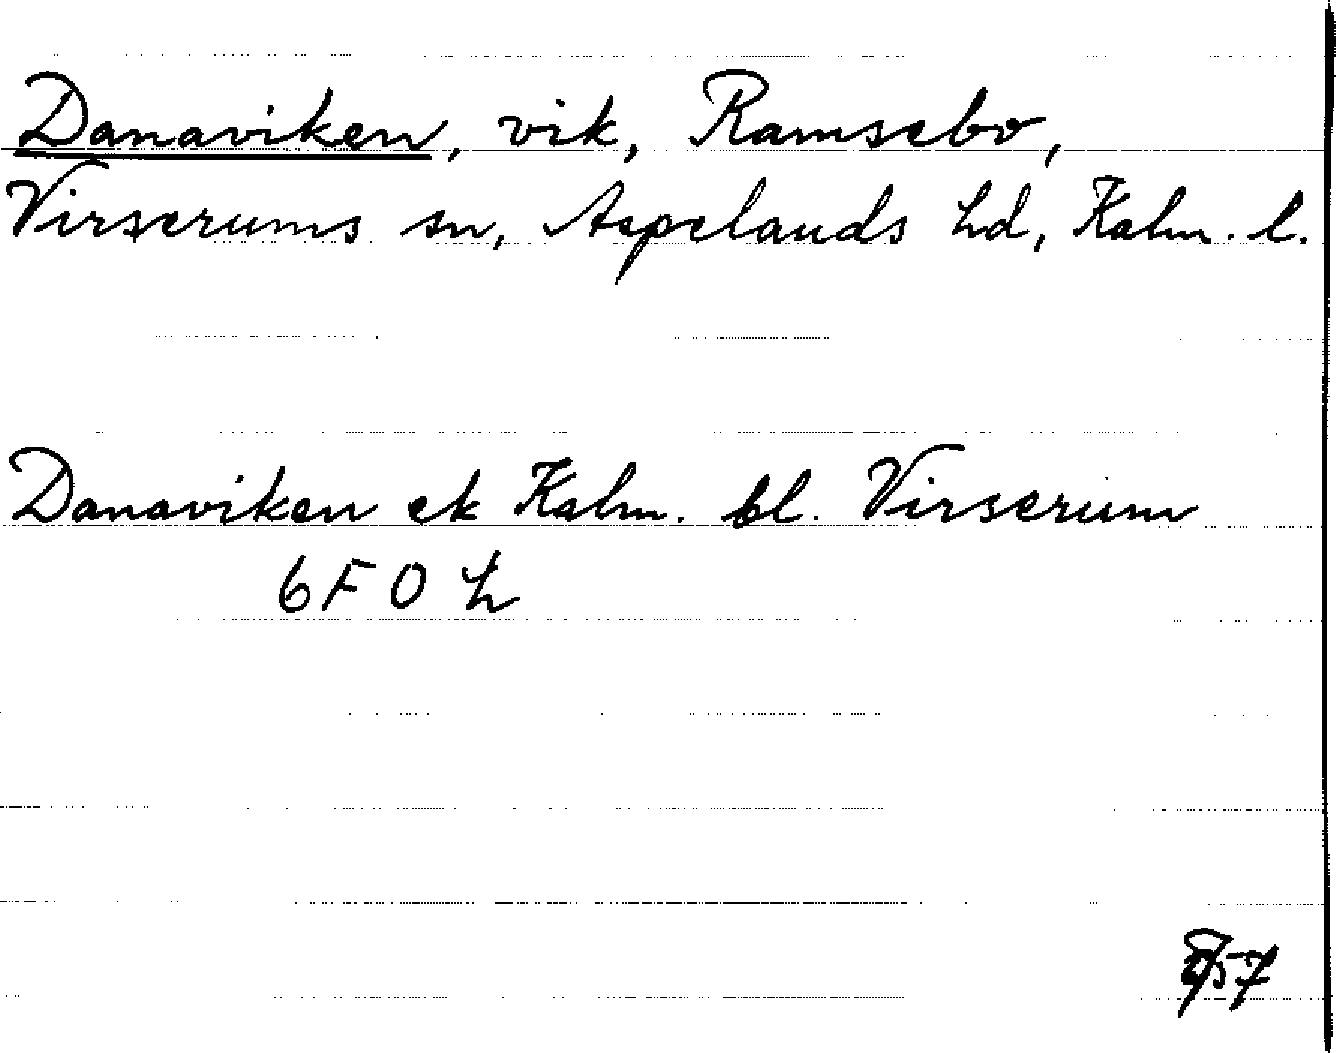 Danaviken, vik, Ramsebo,
Virserums sn, Aspelands hd, Kalm. l.
Danaviken ek Kalm. bl. Virserum
6F 0 h